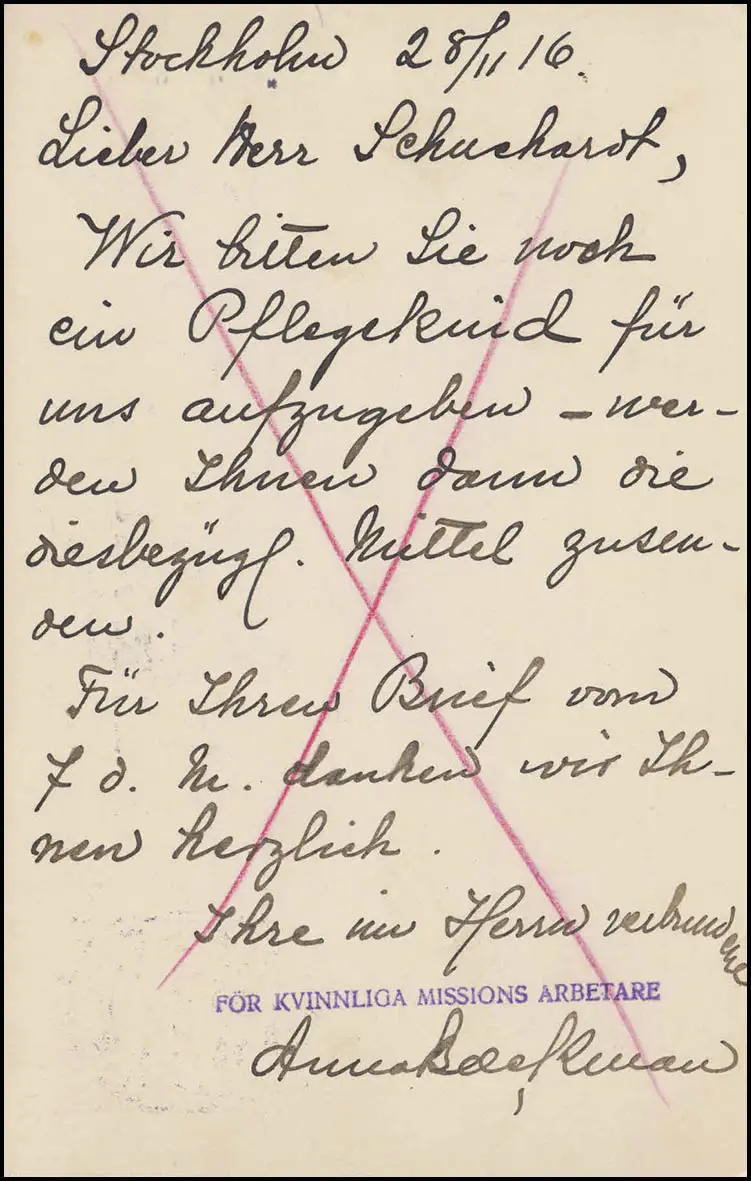 Stockholm 28/11 16.
Lieber Herr Schuchardt,
Wir bitten Sie noch
ein Pflegekind für
uns aufzugeben – wer-
den Ihnen dann die
diesbezügl. Mittel zusen-
den.
Für Ihren Brief vom
7 d. M. danken wir Ih-
nen herzlich.
Ihre im Herrn verbundene
FÖR KVINNLIGA MISSIONS ARBETARE
Anna Bäckman